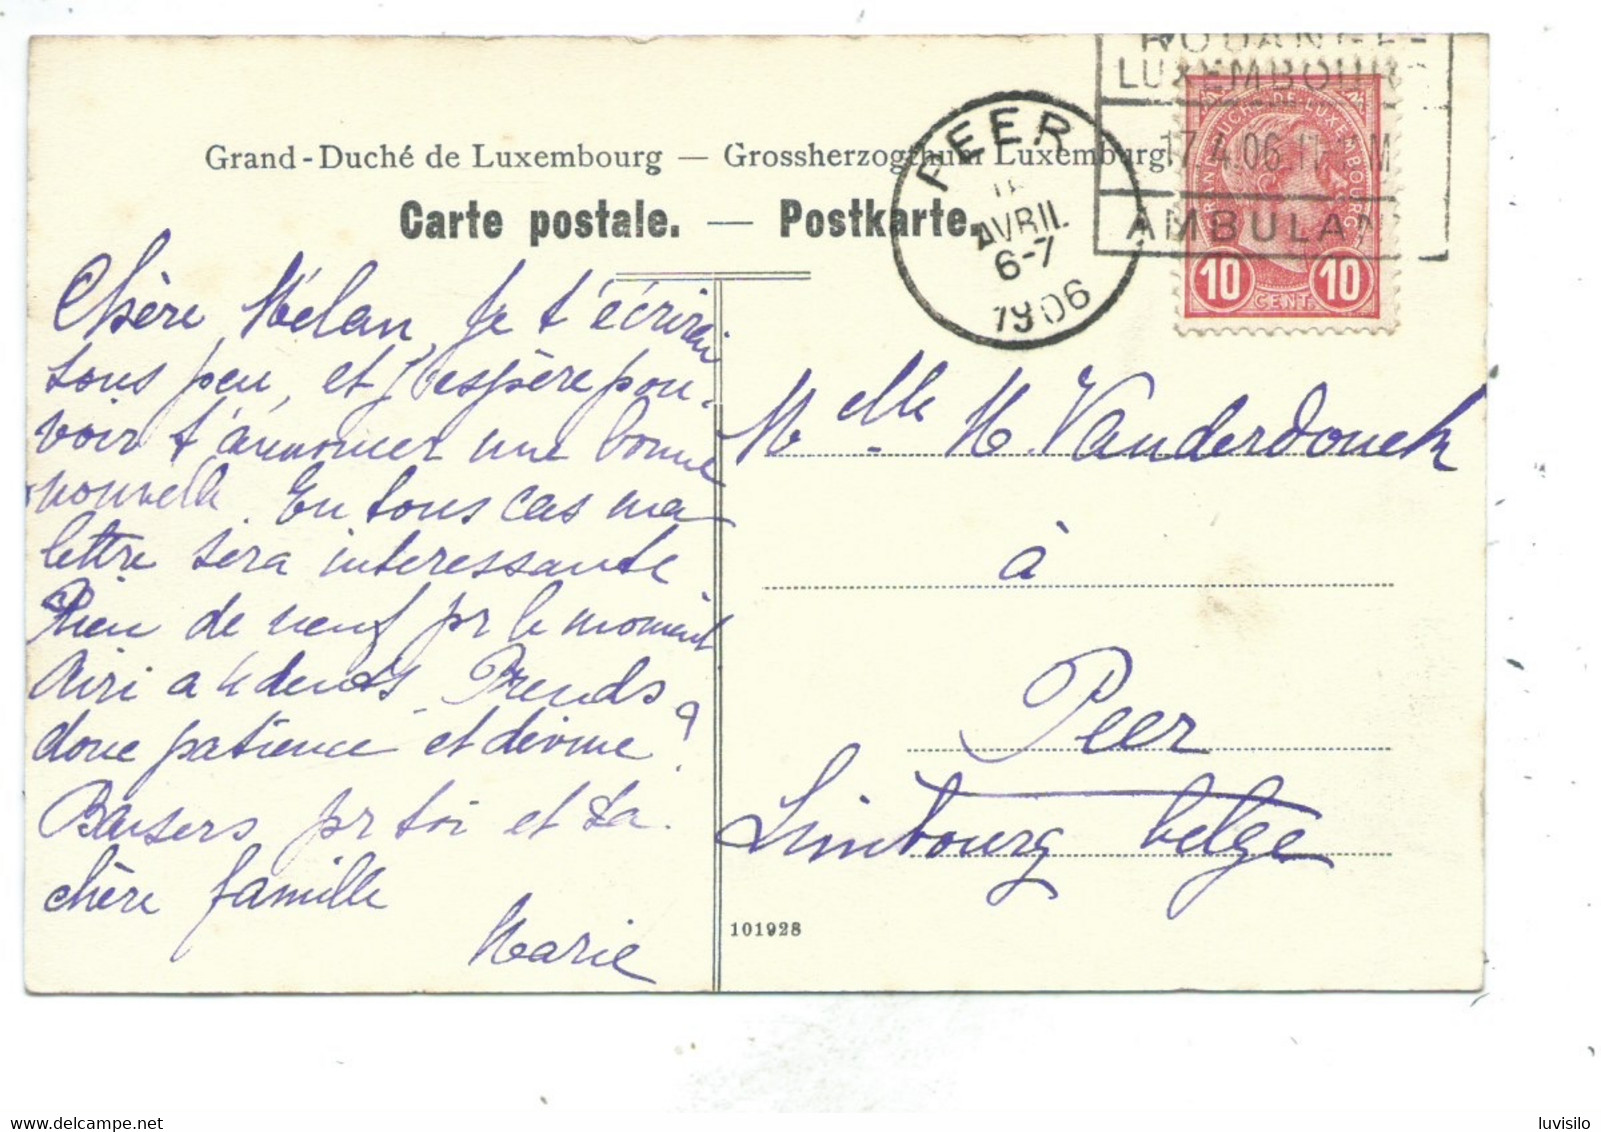 Grand-Duché de Luxembourg — Grossherzogthum Luxemburg
Carte postale. — Postkarte.
LUXEMBOURG
17.4.06
AMBULAN
PEER
AVRIL
6-7
1906
GRAND DUCHÉ-DE-LUXEMBOURG
10 CENT. 10
Chère Mélan, Je t'écrirai
sous peu, et j'espère pou-
voir t'annoncer une bonne
nouvelle. En tous cas ma
lettre sera interessante
Rien de neuf pr le moment
a 4 dents. Prends
donc patience et devine?
Baisers pr toi et ta
chère famille
Marie
Melle M. Vanderdonck
à
Peer
Limbourg belge
101928
luvisilo